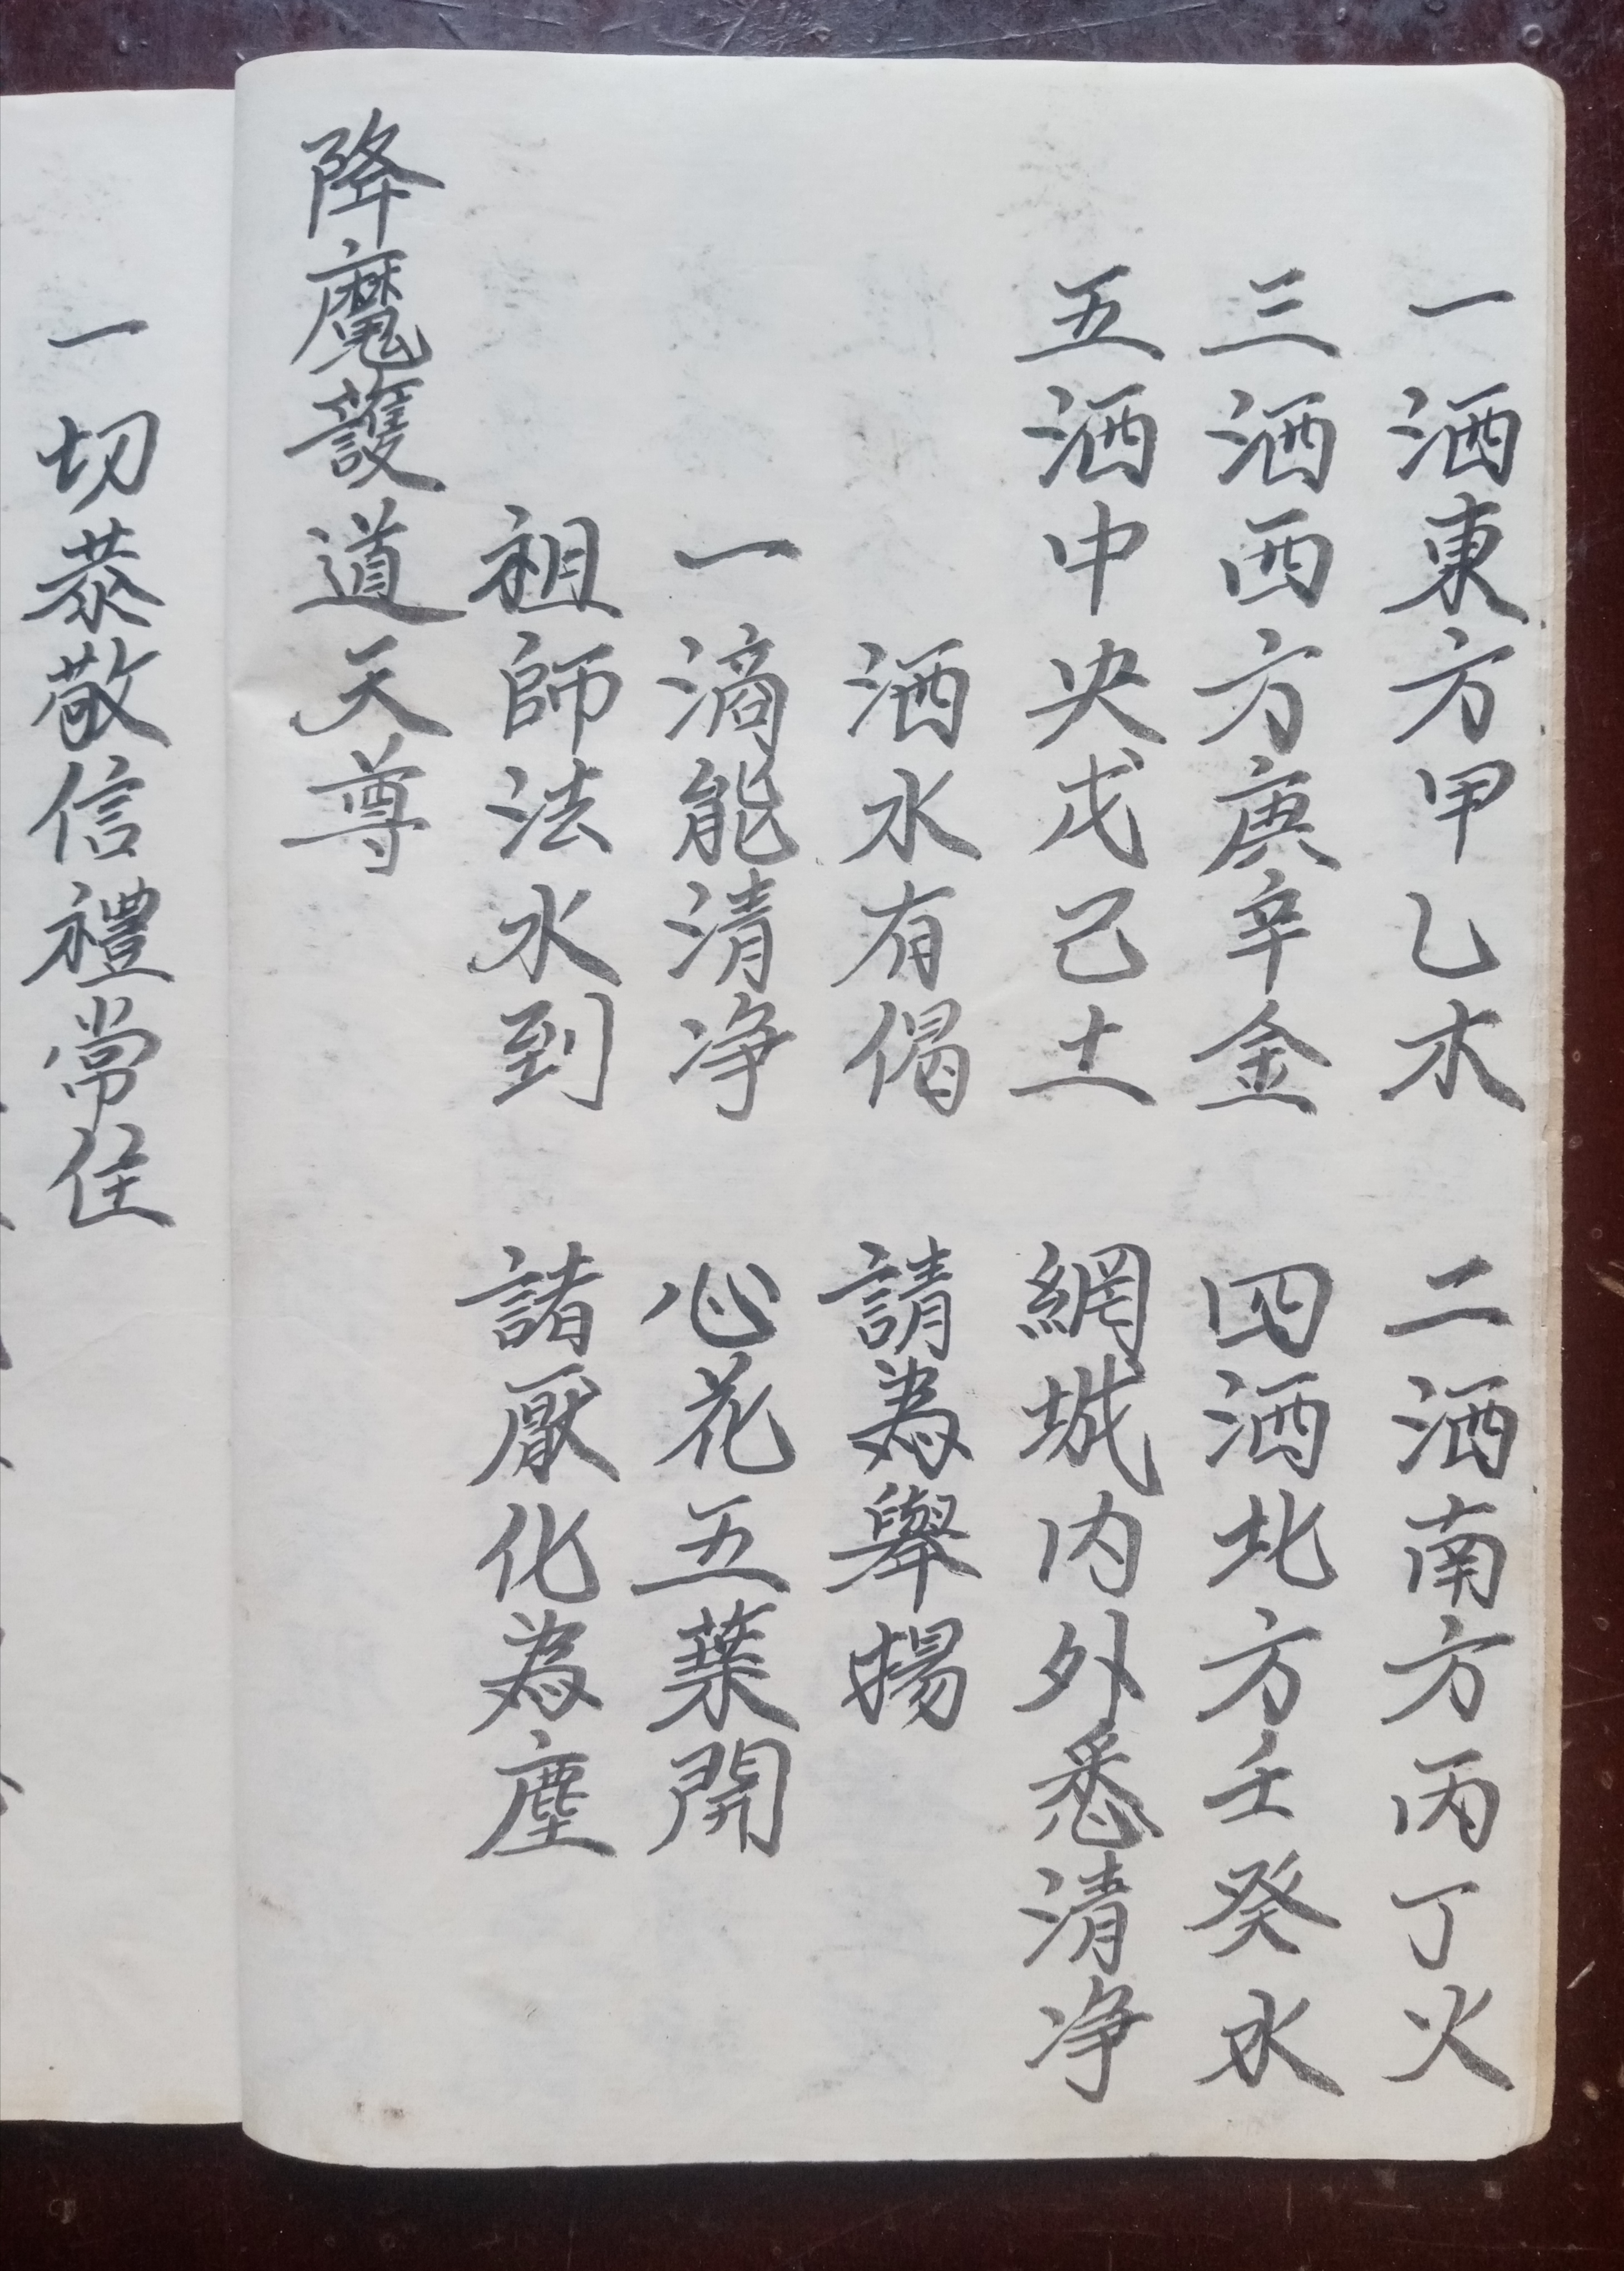 一洒東方甲乙木　二洒南方丙丁火
三洒西方庚辛金　四洒北方壬癸水
五洒中央戊己土　網城内外悉清净
洒水有偈　請為舉揚
一滴能清净　心花五葉開
祖師法水到　諸厭化為塵
降魔護道天尊
一切恭敬信禮常住